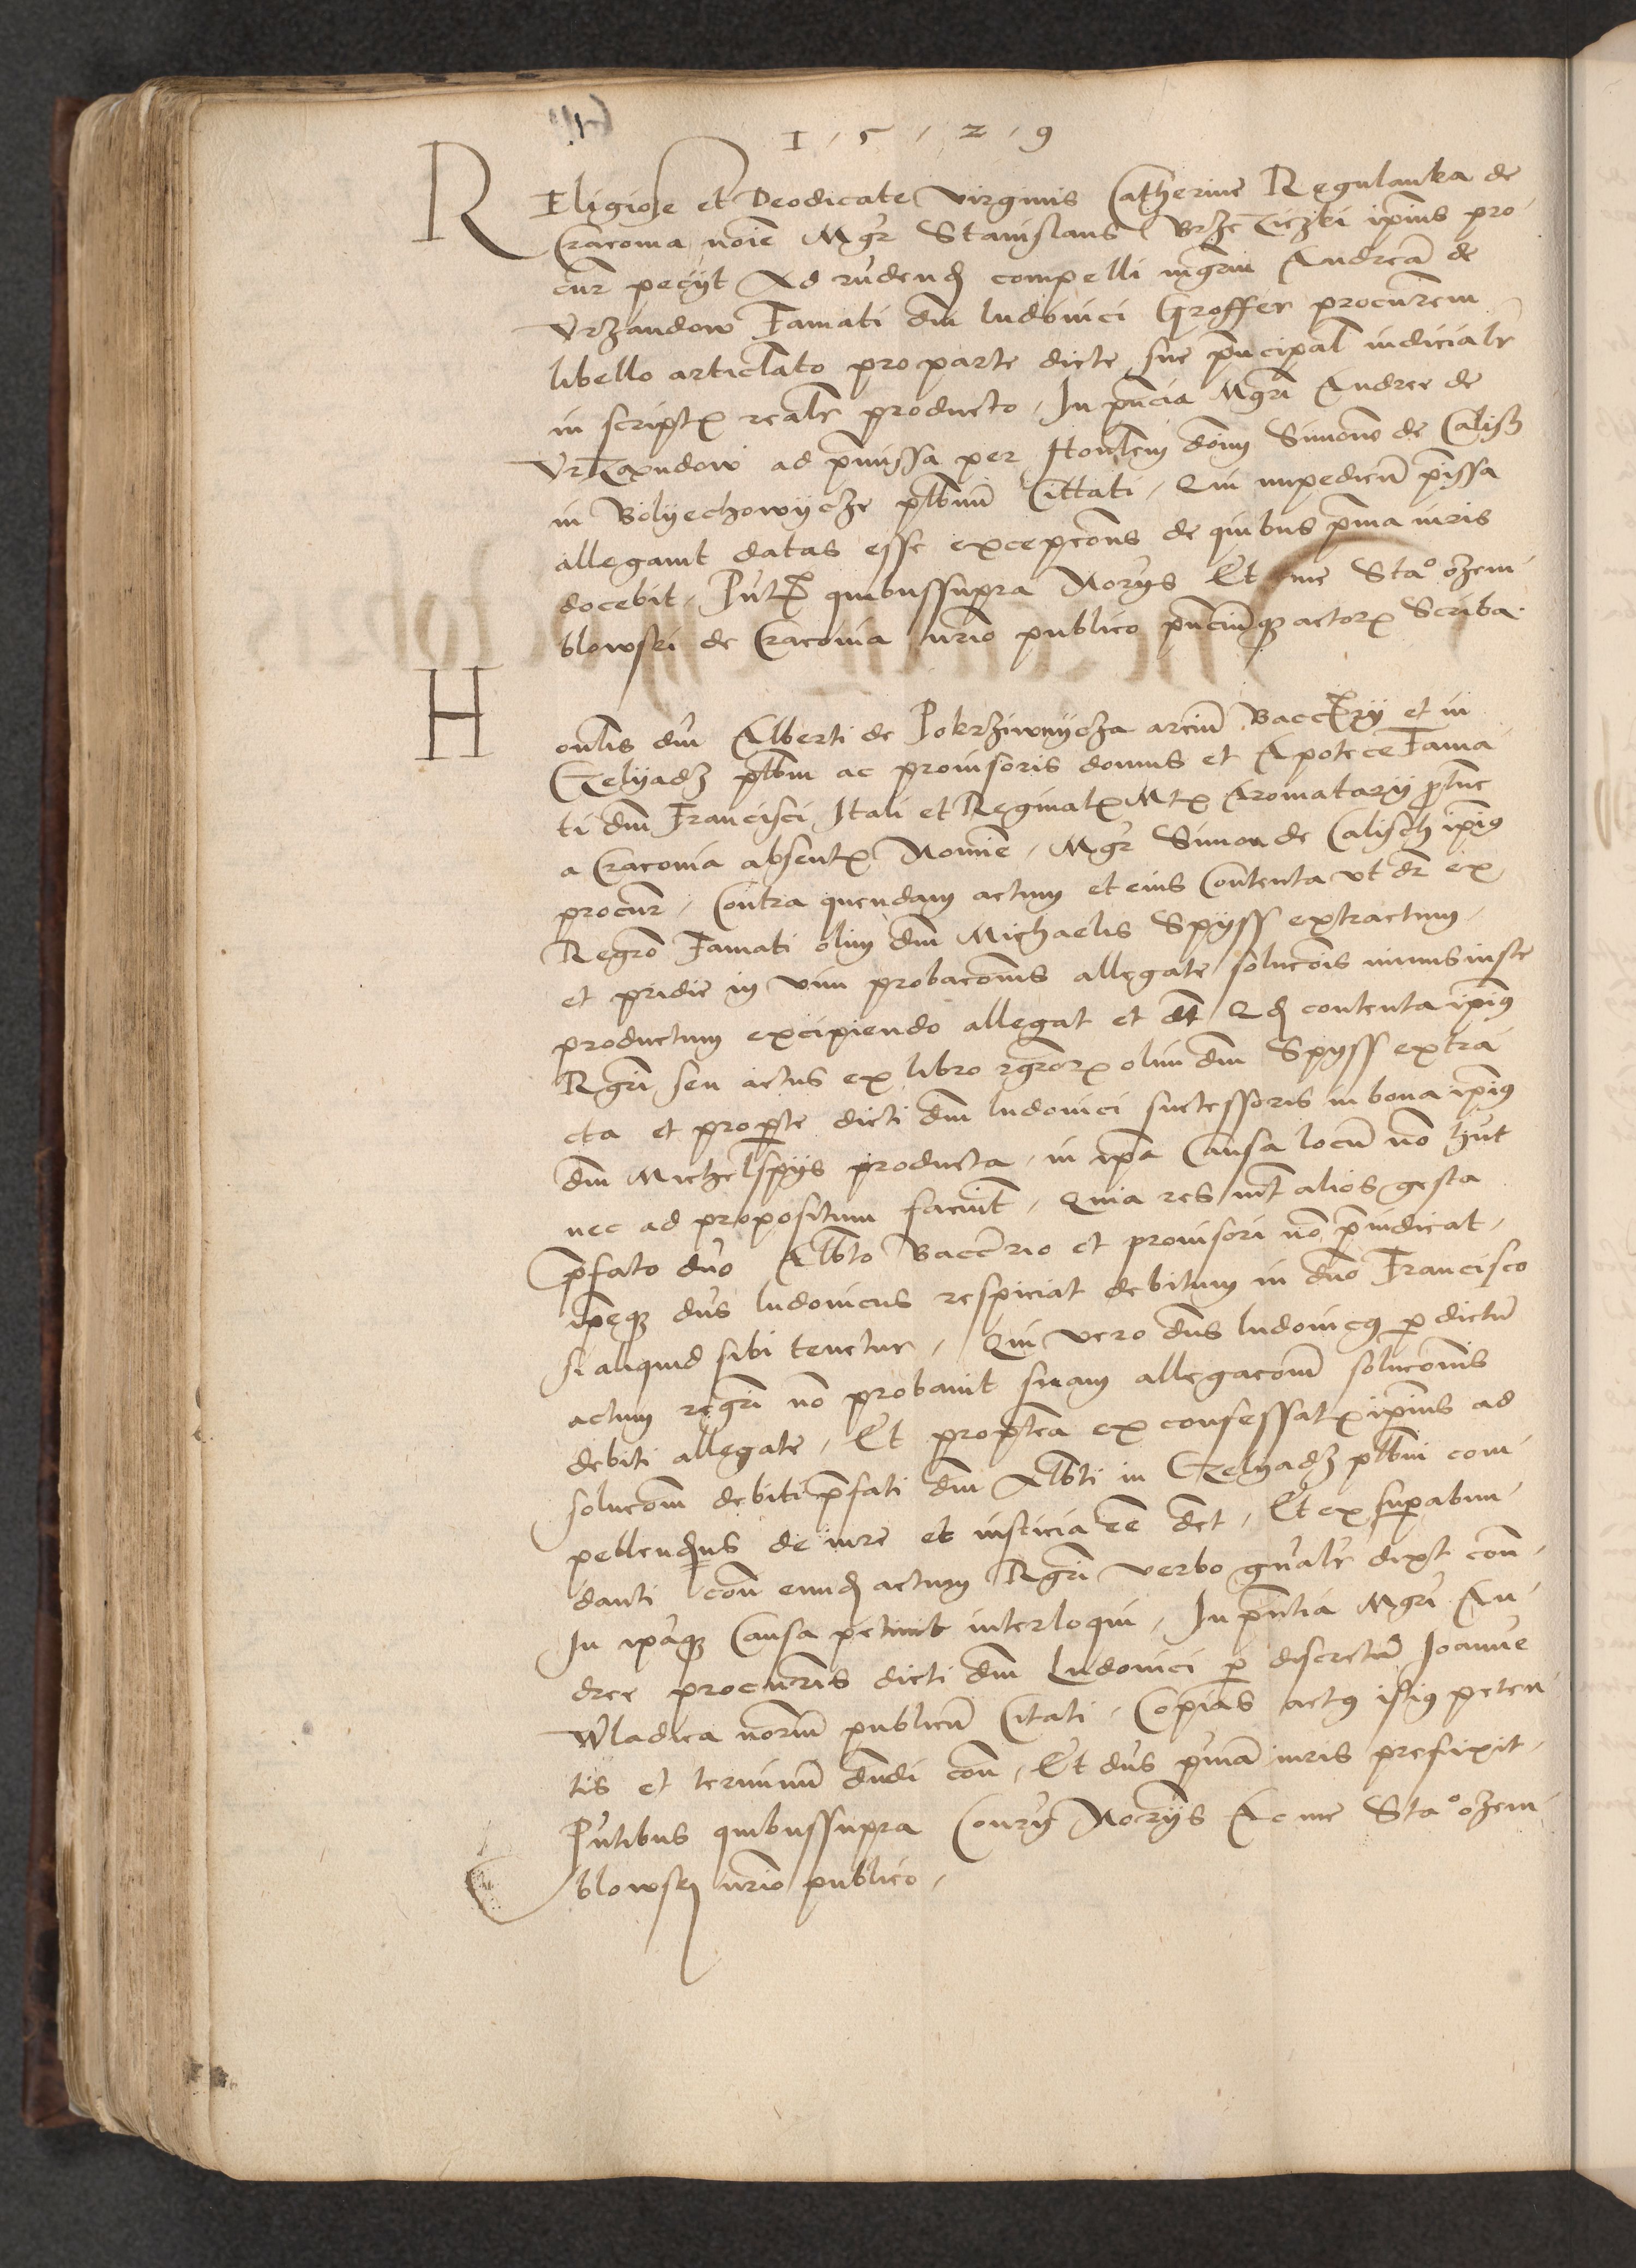 1 5 2 9
REligiose et Deodicate virginis Catherine Regulanka de
Cracovia noie Mgr Stanislaus Brzeziczki ipius pro
cur peciit Ad rndend compelli mgrm Andream de
Vrzandow Famati dni ludovici Groffer procurem
libello articlato pro parte dicte sue pncipal iudicialr
in scriptis realr producto, In pncia Mgri Andree de
Vrzandow ad pmissa per Honlem dom Simone de Calisch
in Bolyechowycze plbnm Cittati, Qui impedien pissa
allegavit datas esse excepcons de quibus pma iuris
docebit, Pntibus quibussupra Norys Et me Sta° ozem
blowski de Cracovia nrio publico pnciumq actorum Scriba.
Honlis dni Alberti de Pokrziwnycza arcium Baccrii et in
Czelyadz plbni ac provisoris domus et Apotece Fama
ti dni Francisci Itali et Reginalis Mtis Aromatarii ptunc
a Cracovia absentis Nomine, Mgr Simon de Calisch ipius
procur, Contra quendam actum et eius Contenta ut dr ex
Regro Famati olim dni Michaelis Spyss extractum,
et pridie in vim probaconis allegate solucois minus iuste
productum excipiendo allegat et dt Qd contenta ipius
Rgri seu actus ex libro rgrorum olim dni Spyss extra
cta et pro pte dicti dni ludovici successoris in bona ipius
dni Michel spys producta, in ipa Causa locum no hnt
nec ad propositum faciunt, Quia res int alios gesta
pfato dno Albto Baccrio et provisori no pиudicat,
ipeq dns ludovicus respiciat debitum in dno Francisco
si aliquid sibi tenetur, Qui vero dns ludovicus p dictum
actum regri no probavit suam allegacom solucionis
debiti allegate, Et proptea ex confessatis ipius ad
solucom debiti pfati dni Albti in Czelyadz plbni com
pellendus de iure et iusticia ee det, Et ex supabun
danti con eund actum Rgri verbo gnalr dixt con,
In ipaq Causa petivit interloqui, In pntia Mgri An
dree procuris dicti dni Ludovici p discretum Joanne
Wladica norium publicum Citati, Copias actus istius peten
tis et terminum dndi con, Et dns pma iuris prefixit,
Pntibus quibussupra Norys Ac me Sta° ozem
blowsky nrio publico,